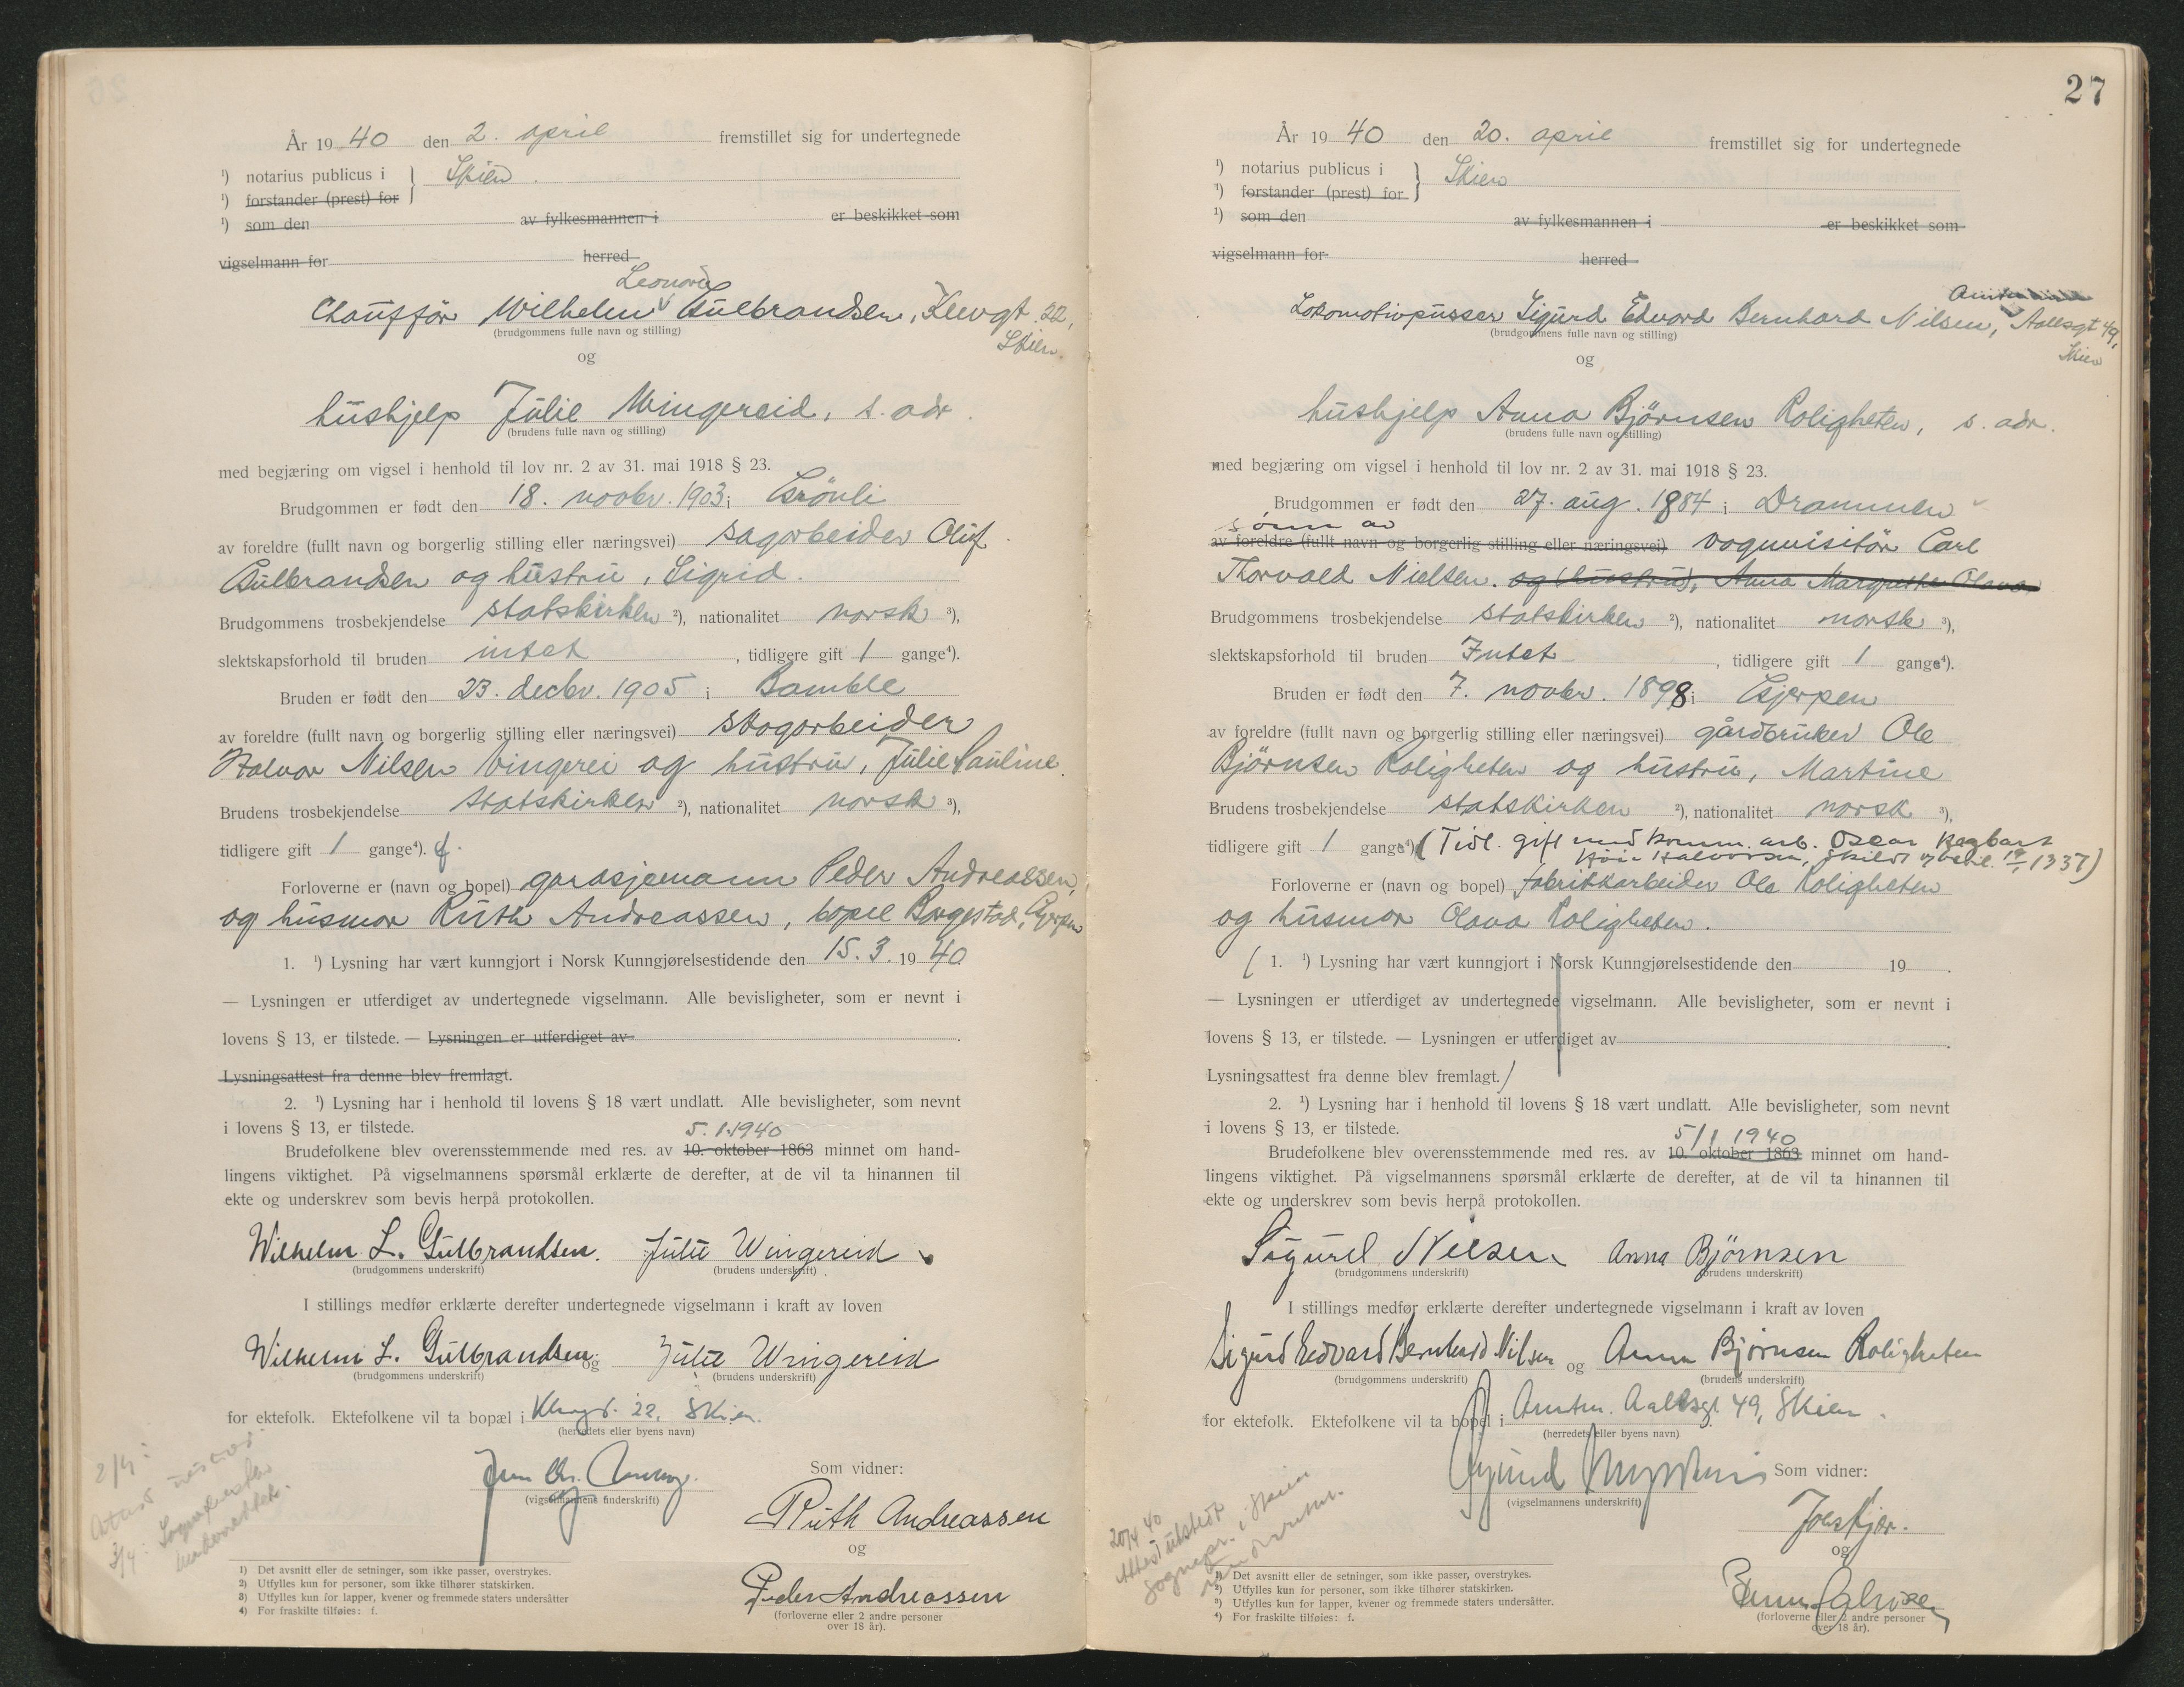 År 19 40 den 2. april fremstillet sig for undertegnede
¹) notarius publicus i } Skien.
¹) forstander (prest) for
¹) som den av fylkesmannen i er beskikket som
vigselmann for herred
Leonard
Chauffør Wilhelm Gulbrandsen, Klevgt. 22,
(brudgommens fulle navn og stilling)
Skien.
og
hushjelp Julie Wingereid, s. adr.
(brudens fulle navn og stilling)
med begjæring om vigsel i henhold til lov nr. 2 av 31. mai 1918 § 23.
Brudgommen er født den 18. novbr. 1903 i Grönli
av foreldre (fullt navn og borgerlig stilling eller næringsvei) sagarbeider Oluf
Gulbrandsen og hustru, Sigrid.
Brudgommens trosbekjendelse statskirken ²), nationalitet norsk ³),
slektskapsforhold til bruden intet , tidligere gift 1 gange⁴).
Bruden er født den 23. decbr. 1905 i Bamble
av foreldre (fullt navn og borgerlig stilling eller næringsvei) skogarbeider
Halvor Nilsen Vingerei og hustru, Julie Pauline.
Brudens trosbekjendelse statskirken ²), nationalitet norsk ³),
tidligere gift 1 gange⁴). f.
Forloverne er (navn og bopel) garasjemann Peder Andreassen,
og husmor Ruth Andreassen, bopel Borgestad, Gjerpen
1. ¹) Lysning har vært kunngjort i Norsk Kunngjørelsestidende den 15. 3. 19 40
— Lysningen er utferdiget av undertegnede vigselmann. Alle bevisligheter, som er nevnt i
lovens § 13, er tilstede. — Lysningen er utferdiget av .
Lysningsattest fra denne blev fremlagt.
2. ¹) Lysning har i henhold til lovens § 18 vært undlatt. Alle bevisligheter, som nevnt
i lovens § 13, er tilstede.
5. 1. 1940
Brudefolkene blev overensstemmende med res. av 10. oktober 1863 minnet om hand-
lingens viktighet. På vigselmannens spørsmål erklærte de derefter, at de vil ta hinannen til
ekte og underskrev som bevis herpå protokollen.
Wilhelm L. Gulbrandsen. Julie Wingereid
(brudgommens underskrift) (brudens underskrift)
I stillings medfør erklærte derefter undertegnede vigselmann i kraft av loven
Wilhelm L. Gulbrandsen og Julie Wingereid
(brudgommens underskrift) (brudens underskrift)
for ektefolk. Ektefolkene vil ta bopæl i Klevgt. 22, Skien.
(herredets eller byens navn)
2/4:
Attest utstedt.
3/4: Sognepresten
underrettet.
Som vidner:
(vigselmannens underskrift)
Ruth Andreassen
og
Peder Andreassen
(forloverne eller 2 andre personer
over 18 år).
1) Det avsnitt eller de setninger, som ikke passer, overstrykes.
2) Utfylles kun for personer, som ikke tilhører statskirken.
3) Utfylles kun for lapper, kvener og fremmede staters undersåtter
4) For fraskilte tilføies: f.
27
År 19 40 den 20. april fremstillet sig for undertegnede
¹) notarius publicus i } Skien
¹) forstander (prest) for
¹) som den av fylkesmannen i er beskikket som
vigselmann for herred
Lokomotivpusser Sigurd Edvard Bernhard Nilsen, Aallsgt 49,
(brudgommens fulle navn og stilling)
Skien
og
hushjelp Anna Björnsen Roligheten, s. adr.
(brudens fulle navn og stilling)
med begjæring om vigsel i henhold til lov nr. 2 av 31. mai 1918 § 23.
Brudgommen er født den 27. aug. 1884 i Drammen
sönn av
av foreldre (fullt navn og borgerlig stilling eller næringsvei) vognvisitör Carl
Thorvald Nielsen. og (hustru), Anna Margrethe Olava
Brudgommens trosbekjendelse statskirken ²), nationalitet norsk ³),
slektskapsforhold til bruden Intet , tidligere gift 1 gange⁴).
Bruden er født den 7. novbr. 1898 i Gjerpen
av foreldre (fullt navn og borgerlig stilling eller næringsvei) gårdbruker Ole
Björnsen Roligheten og hustru, Martine
Brudens trosbekjendelse statskirken ²), nationalitet norsk ³),
tidligere gift 1 gange⁴). (Tidl. gift med komm. arb. Oscar Ragbart
Halvorsen, skilt 1937)
Forloverne er (navn og bopel) fabrikkarbeider Ole Roligheten
og husmor Olava Roligheten.
( 1. ¹) Lysning har vært kunngjort i Norsk Kunngjørelsestidende den 19 .
— Lysningen er utferdiget av undertegnede vigselmann. Alle bevisligheter, som er nevnt i
lovens § 13, er tilstede. — Lysningen er utferdiget av .
Lysningsattest fra denne blev fremlagt. )
2. ¹) Lysning har i henhold til lovens § 18 vært undlatt. Alle bevisligheter, som nevnt
i lovens § 13, er tilstede.
5/1 1940
Brudefolkene blev overensstemmende med res. av 10. oktober 1863 minnet om hand-
lingens viktighet. På vigselmannens spørsmål erklærte de derefter, at de vil ta hinannen til
ekte og underskrev som bevis herpå protokollen.
Sigurd Nilsen Anna Björnsen
(brudgommens underskrift) (brudens underskrift)
I stillings medfør erklærte derefter undertegnede vigselmann i kraft av loven
Sigurd Edvard Bernhard Nilsen og Anna Björnsen Roligheten
(brudgommens underskrift) (brudens underskrift)
for ektefolk. Ektefolkene vil ta bopel i Amtm. Aallsgt. 49, Skien.
(herredets eller byens navn)
20/4 40
Attest utstedt
Sognepr. i Skien
underrettet.
Som vidner:
(vigselmannens underskrift)
og
(forloverne eller 2 andre personer
over 18 år).
¹) Det avsnitt eller de setninger, som ikke passer, overstrykes.
²) Utfylles kun for personer, som ikke tilhører statskirken.
³) Utfylles kun for lapper, kvener og fremmede staters undersåtter.
⁴) For fraskilte tilføies: f.